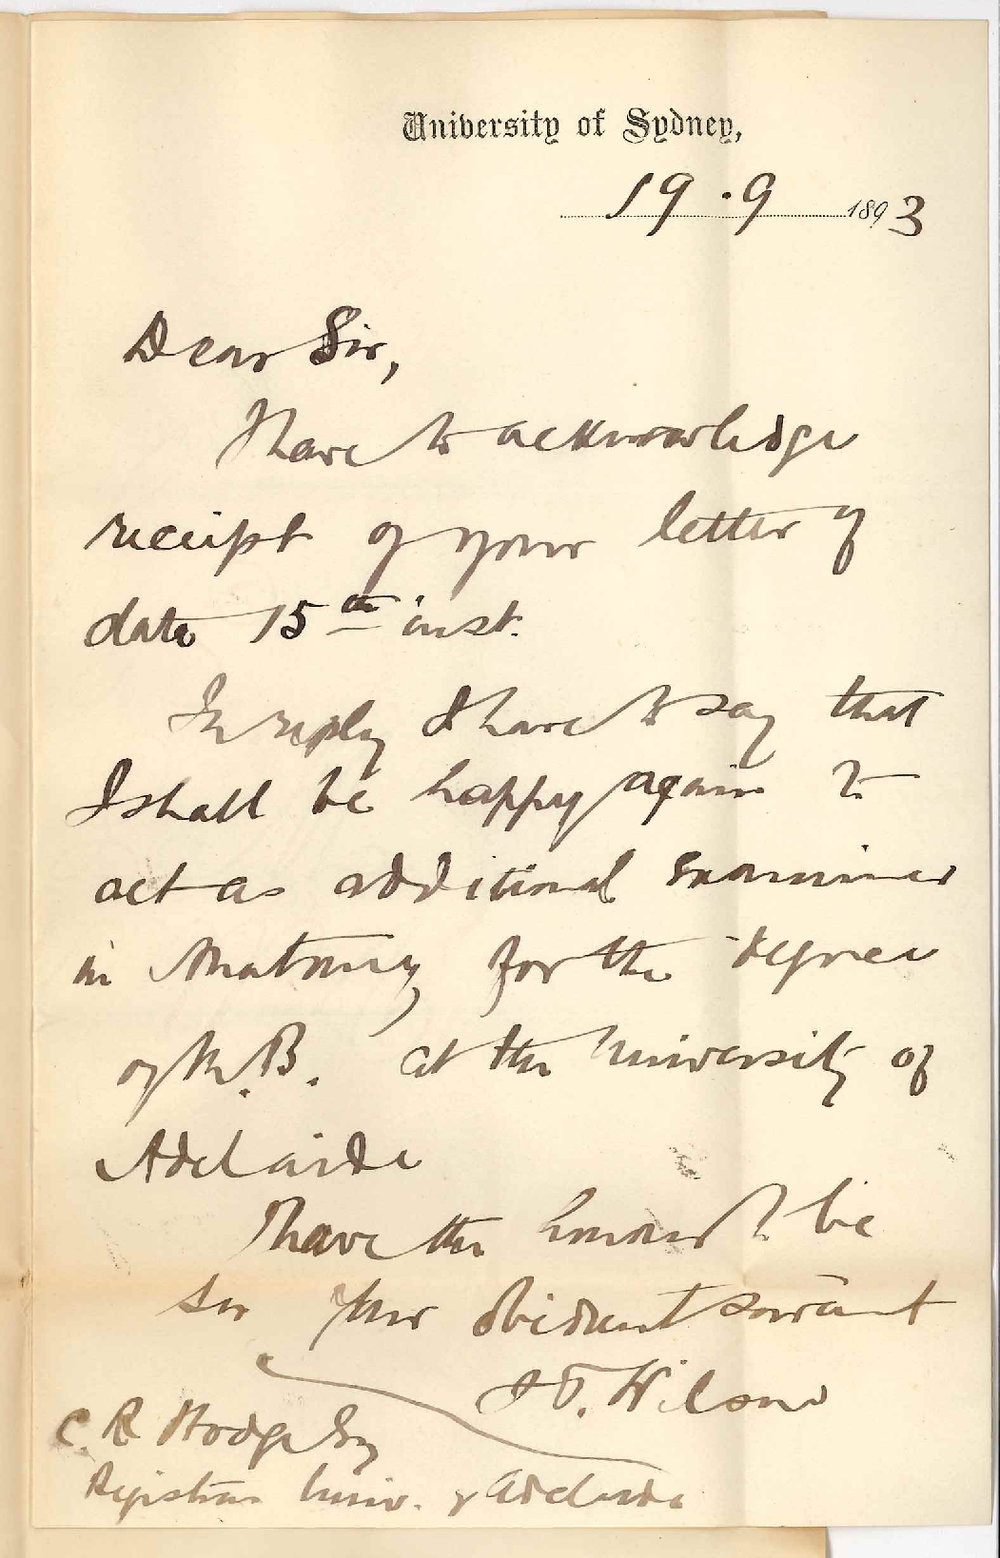 University of Sydney,
19.9 1893
Dear Sir,
I have to acknowledge
receipt of your letter of
date 15th inst.
In reply I have to say that
I shall be happy again to
act as additional examiner
in Anatomy for the degree
of M.B. at the University of
Adelaide
I have the honour to be
Sir Your obedient servant
J T. Wilson
C. R Hodge Esq
Registrar Univ. of Adelaide